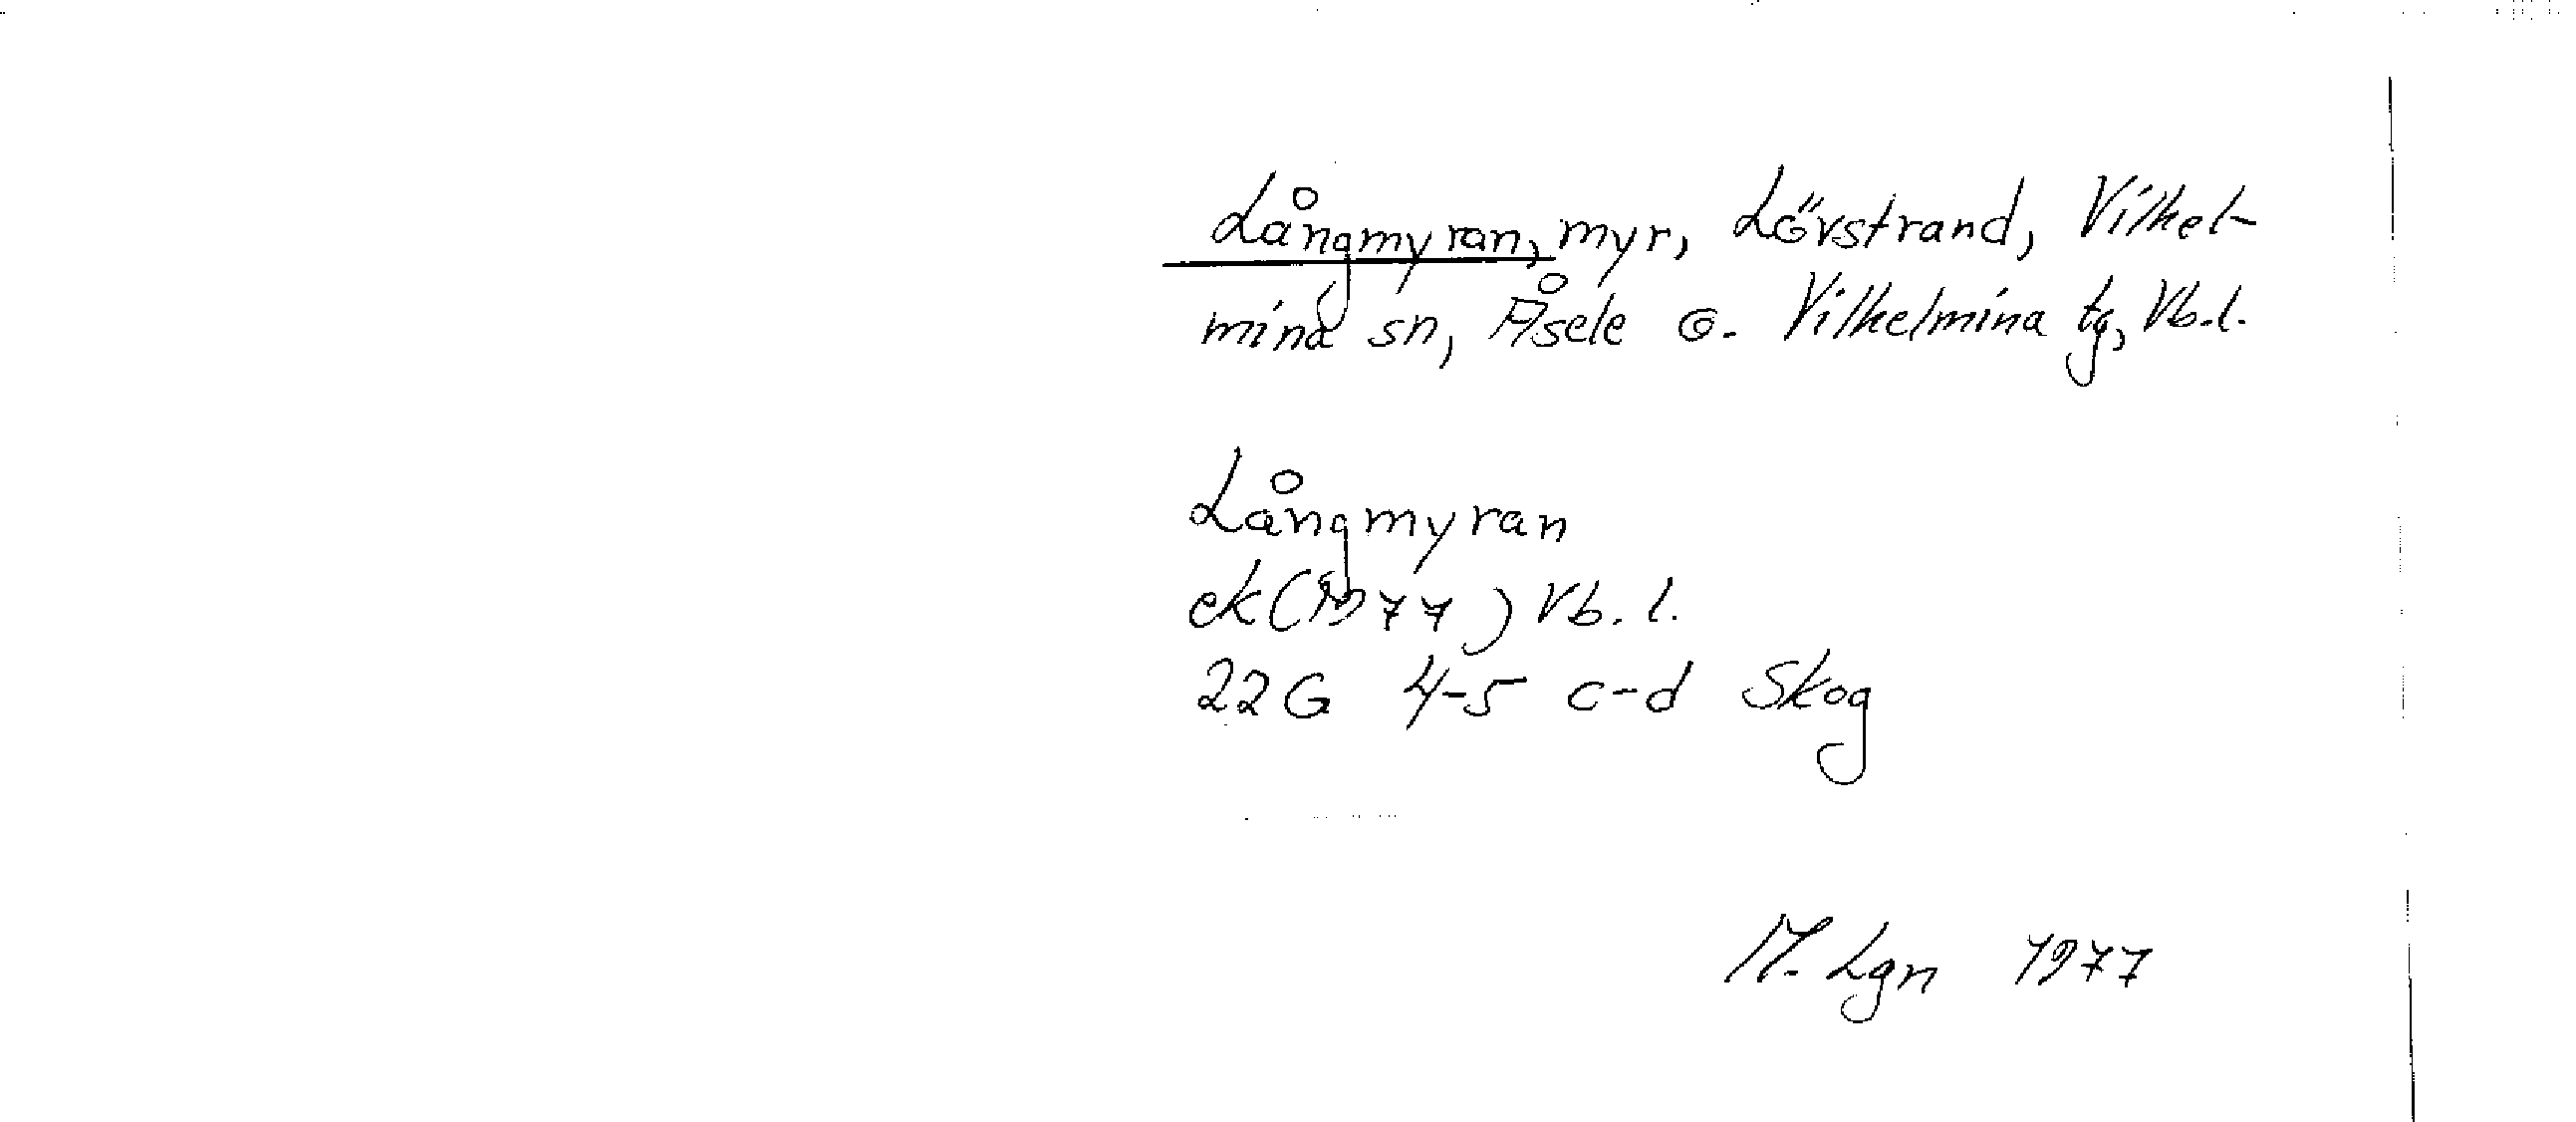 Långmyran, myr, Lövstrand, Vilhel-
mina sn, Åsele o. Vilhelmina tg, Vb.l.
Långmyran
ek (1977) Vb. l.
22G 4-5 c-d Skog
M. Lgn 1977